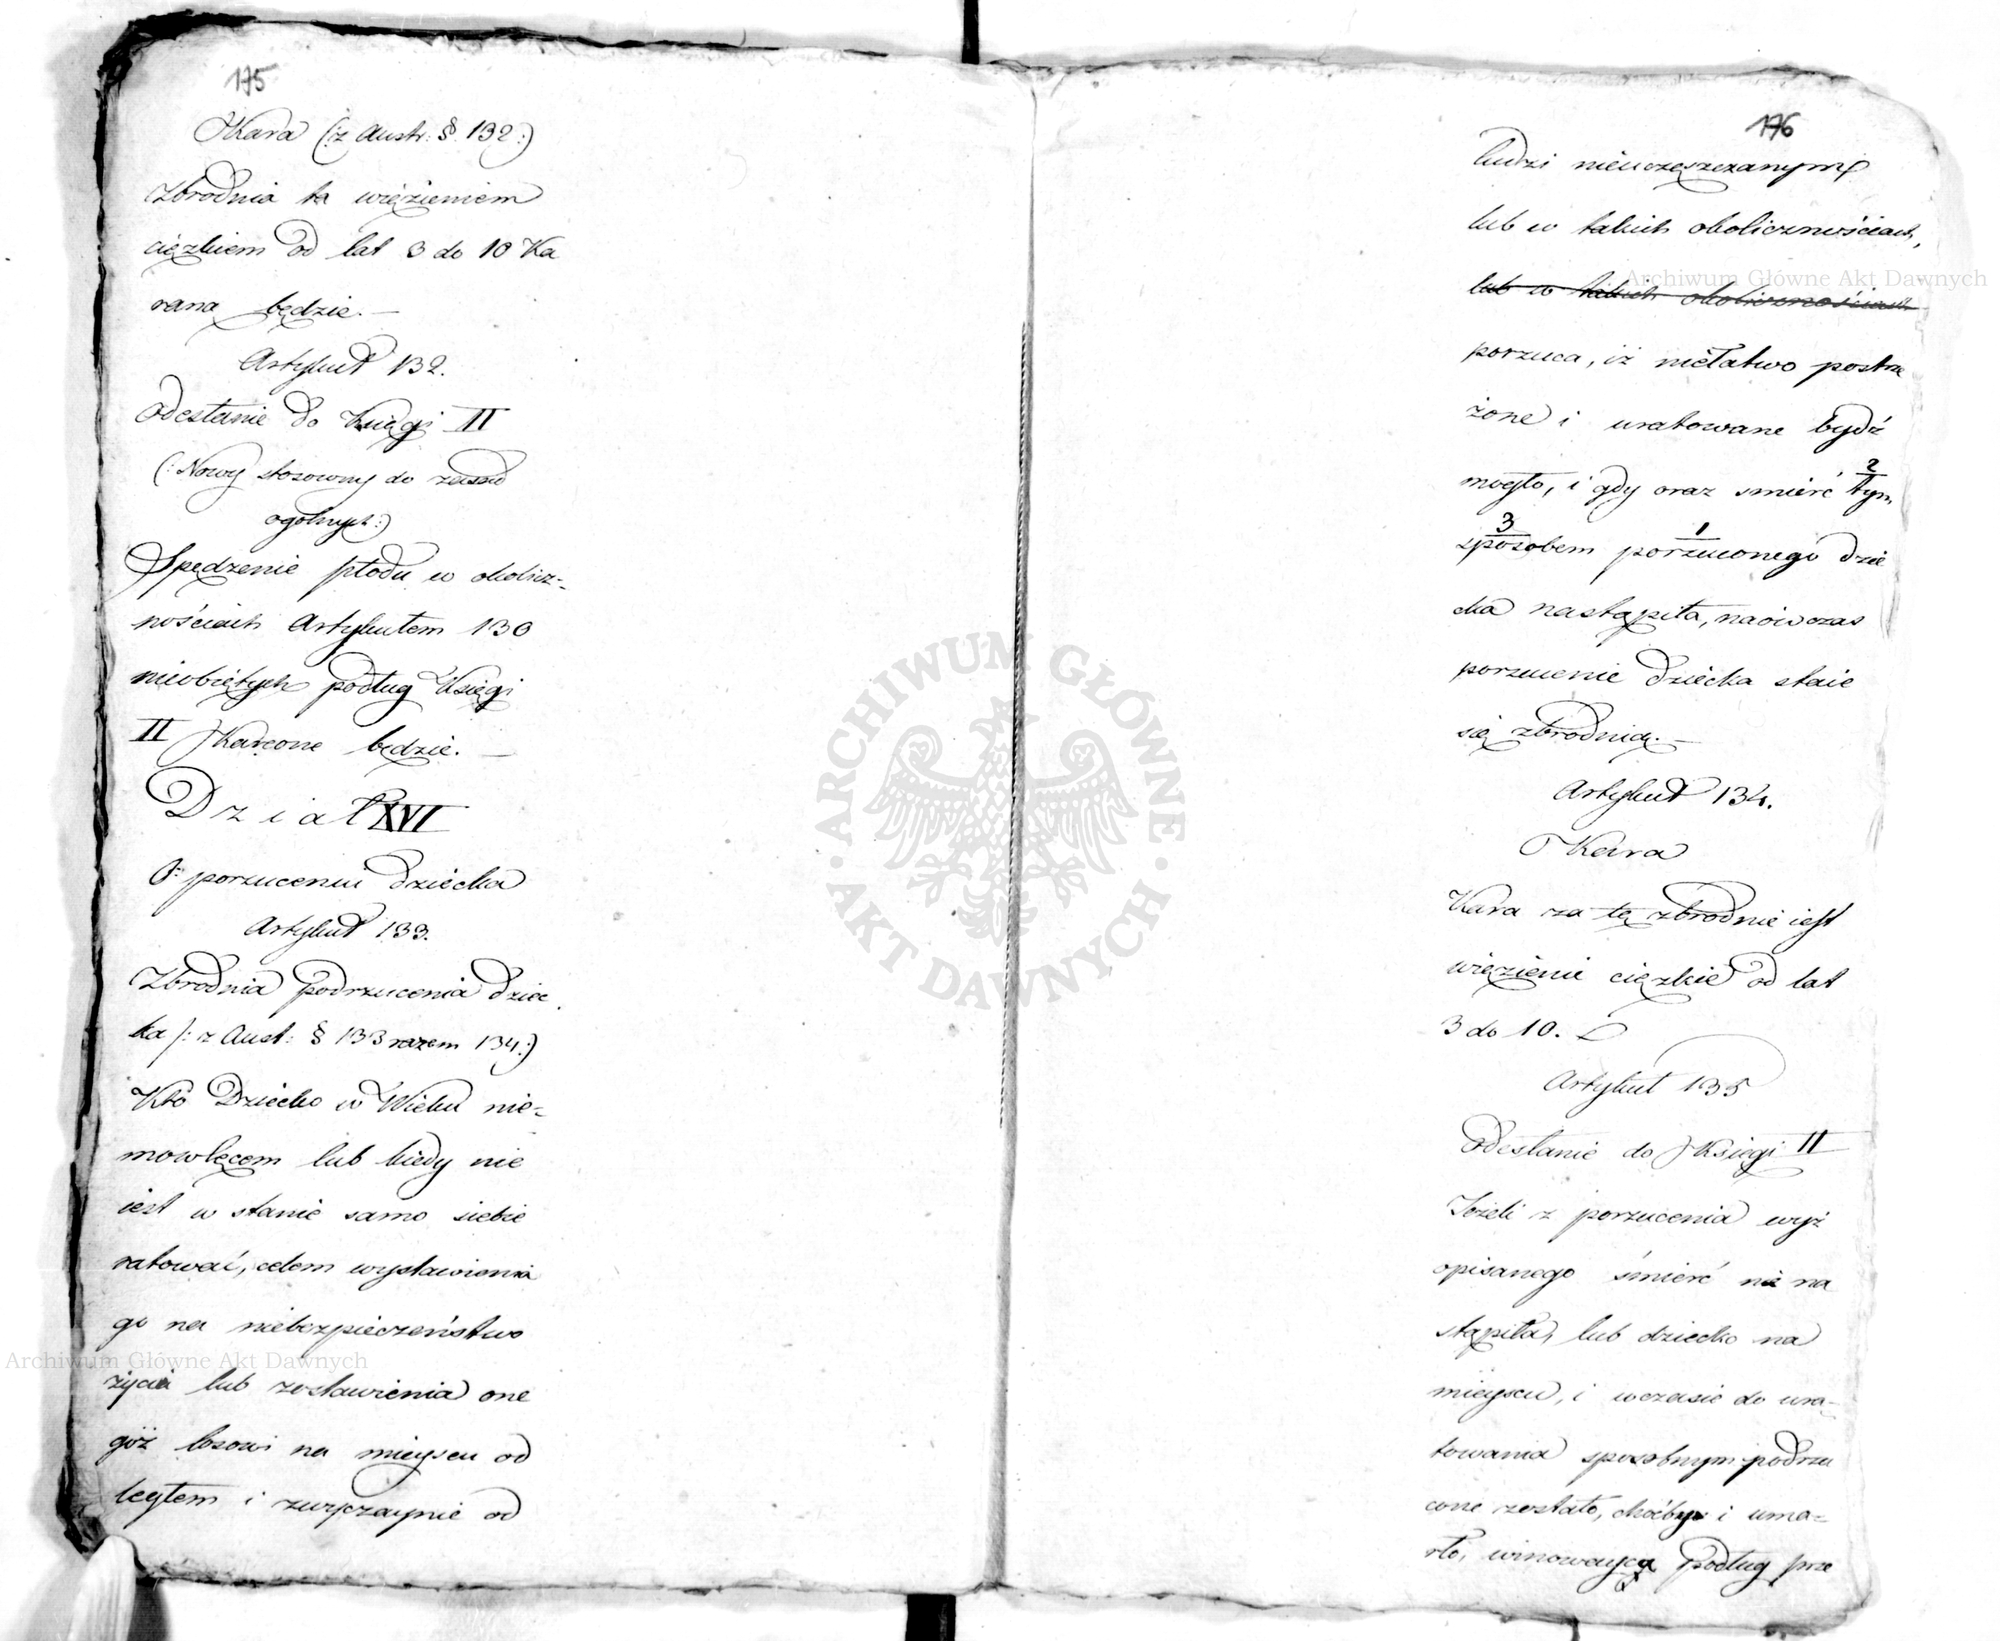 175
Kara (: z Austr: § 132 :)
Zbrodnia ta więzieniem
ciężkiem od lat 3 do 10 Ka
rana będzie. —
Artykuł 132.
Odesłanie do Księgi II
(: Nowy stosowny do zasad
ogolnych :)
Spędzenie płodu w okolicz=
nościach Artykułem 130
nieobiętych podług Księgi
II Karcone będzie. —
Dział XVI
O porzuceniu dziecka
Artykuł 133.
Zbrodnia podrzucenia dziec
ka /: z Aust: § 133 razem 134. :)
Kto Dziecko w Wieku nie=
mowlęcem lub kiedy nie
iest w stanie samo siebie
ratować, celem wystawienia
go na niebezpieczeństwo
życia lub zostawienia one
goż losowi na mieyscu od
ległem i zwyczaynie od
176
ludzi nieuczęszczanym
lub w takich okolicznościach,
lub w takich okolicznościach
porzuca, iż niełatwo postrze
żone i uratowane bydź
mogło, i gdy oraz smierć 2 tym
3 sposobem 1 porzuconego dzie
cka nastąpiła, naówczas
porzucenie dziecka staie
się zbrodnią. —
Artykuł 134.
Kara
Kara za tę zbrodnie iest
więzienie ciężkie od lat
3 do 10.
Artykuł 135
Odesłanie do Księgi II
Jeżeli z porzucenia wyż
opisanego śmierć nie na
stąpiła, lub dziecko na
mieyscu, i wczasie do ura=
towania sposobnym podrzu
cone zostało, choćby i uma=
rło, winowayca podług prze
Archiwum Główne Akt Dawnych
Archiwum Główne Akt Dawnych
ARCHIWUM GŁÓWNE · AKT DAWNYCH ·